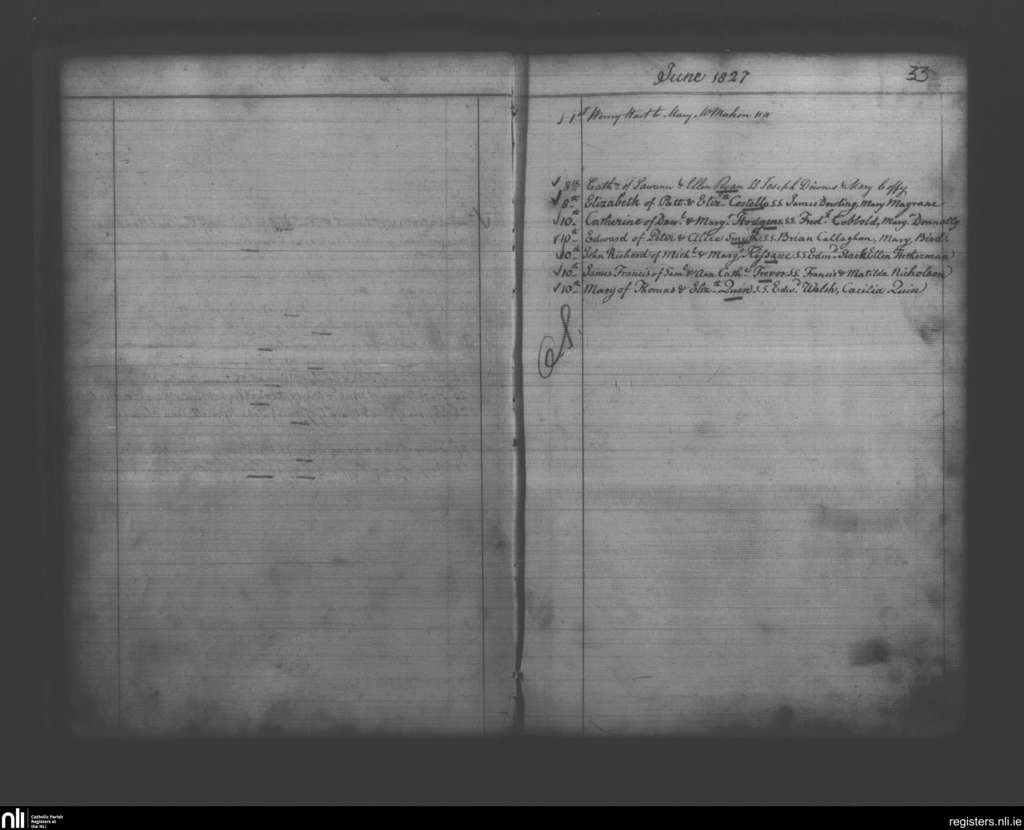 June 1827 33
1st Henry Hart to Mary McMahon
8th Cathe of Lawrence & Ellen Ryan SS Joseph Downes & Mary Coffy
8th Elizabeth of Patt & Elizth Costello S.S. James Dowling, Mary Magrane
10th Catherine of Danl & Margt Hodgens S.S. Fredk Cobbold, Margt Donnolly
10th Edward of Peter & Alice Smyth S.S. Brian Callaghan, Mary Bird
10th John Richard of Michl & Margt SS Edmd Ellen
10th James Francis of Saml & Ann Cathe Trevor S.S. Francis & Matilda Nicholson
10th Mary of Thomas & Elizth Quin S.S. Edwd Walsh, Cacilia Quin
nli Catholic Parish Registers at the NLI
registers.nli.ie